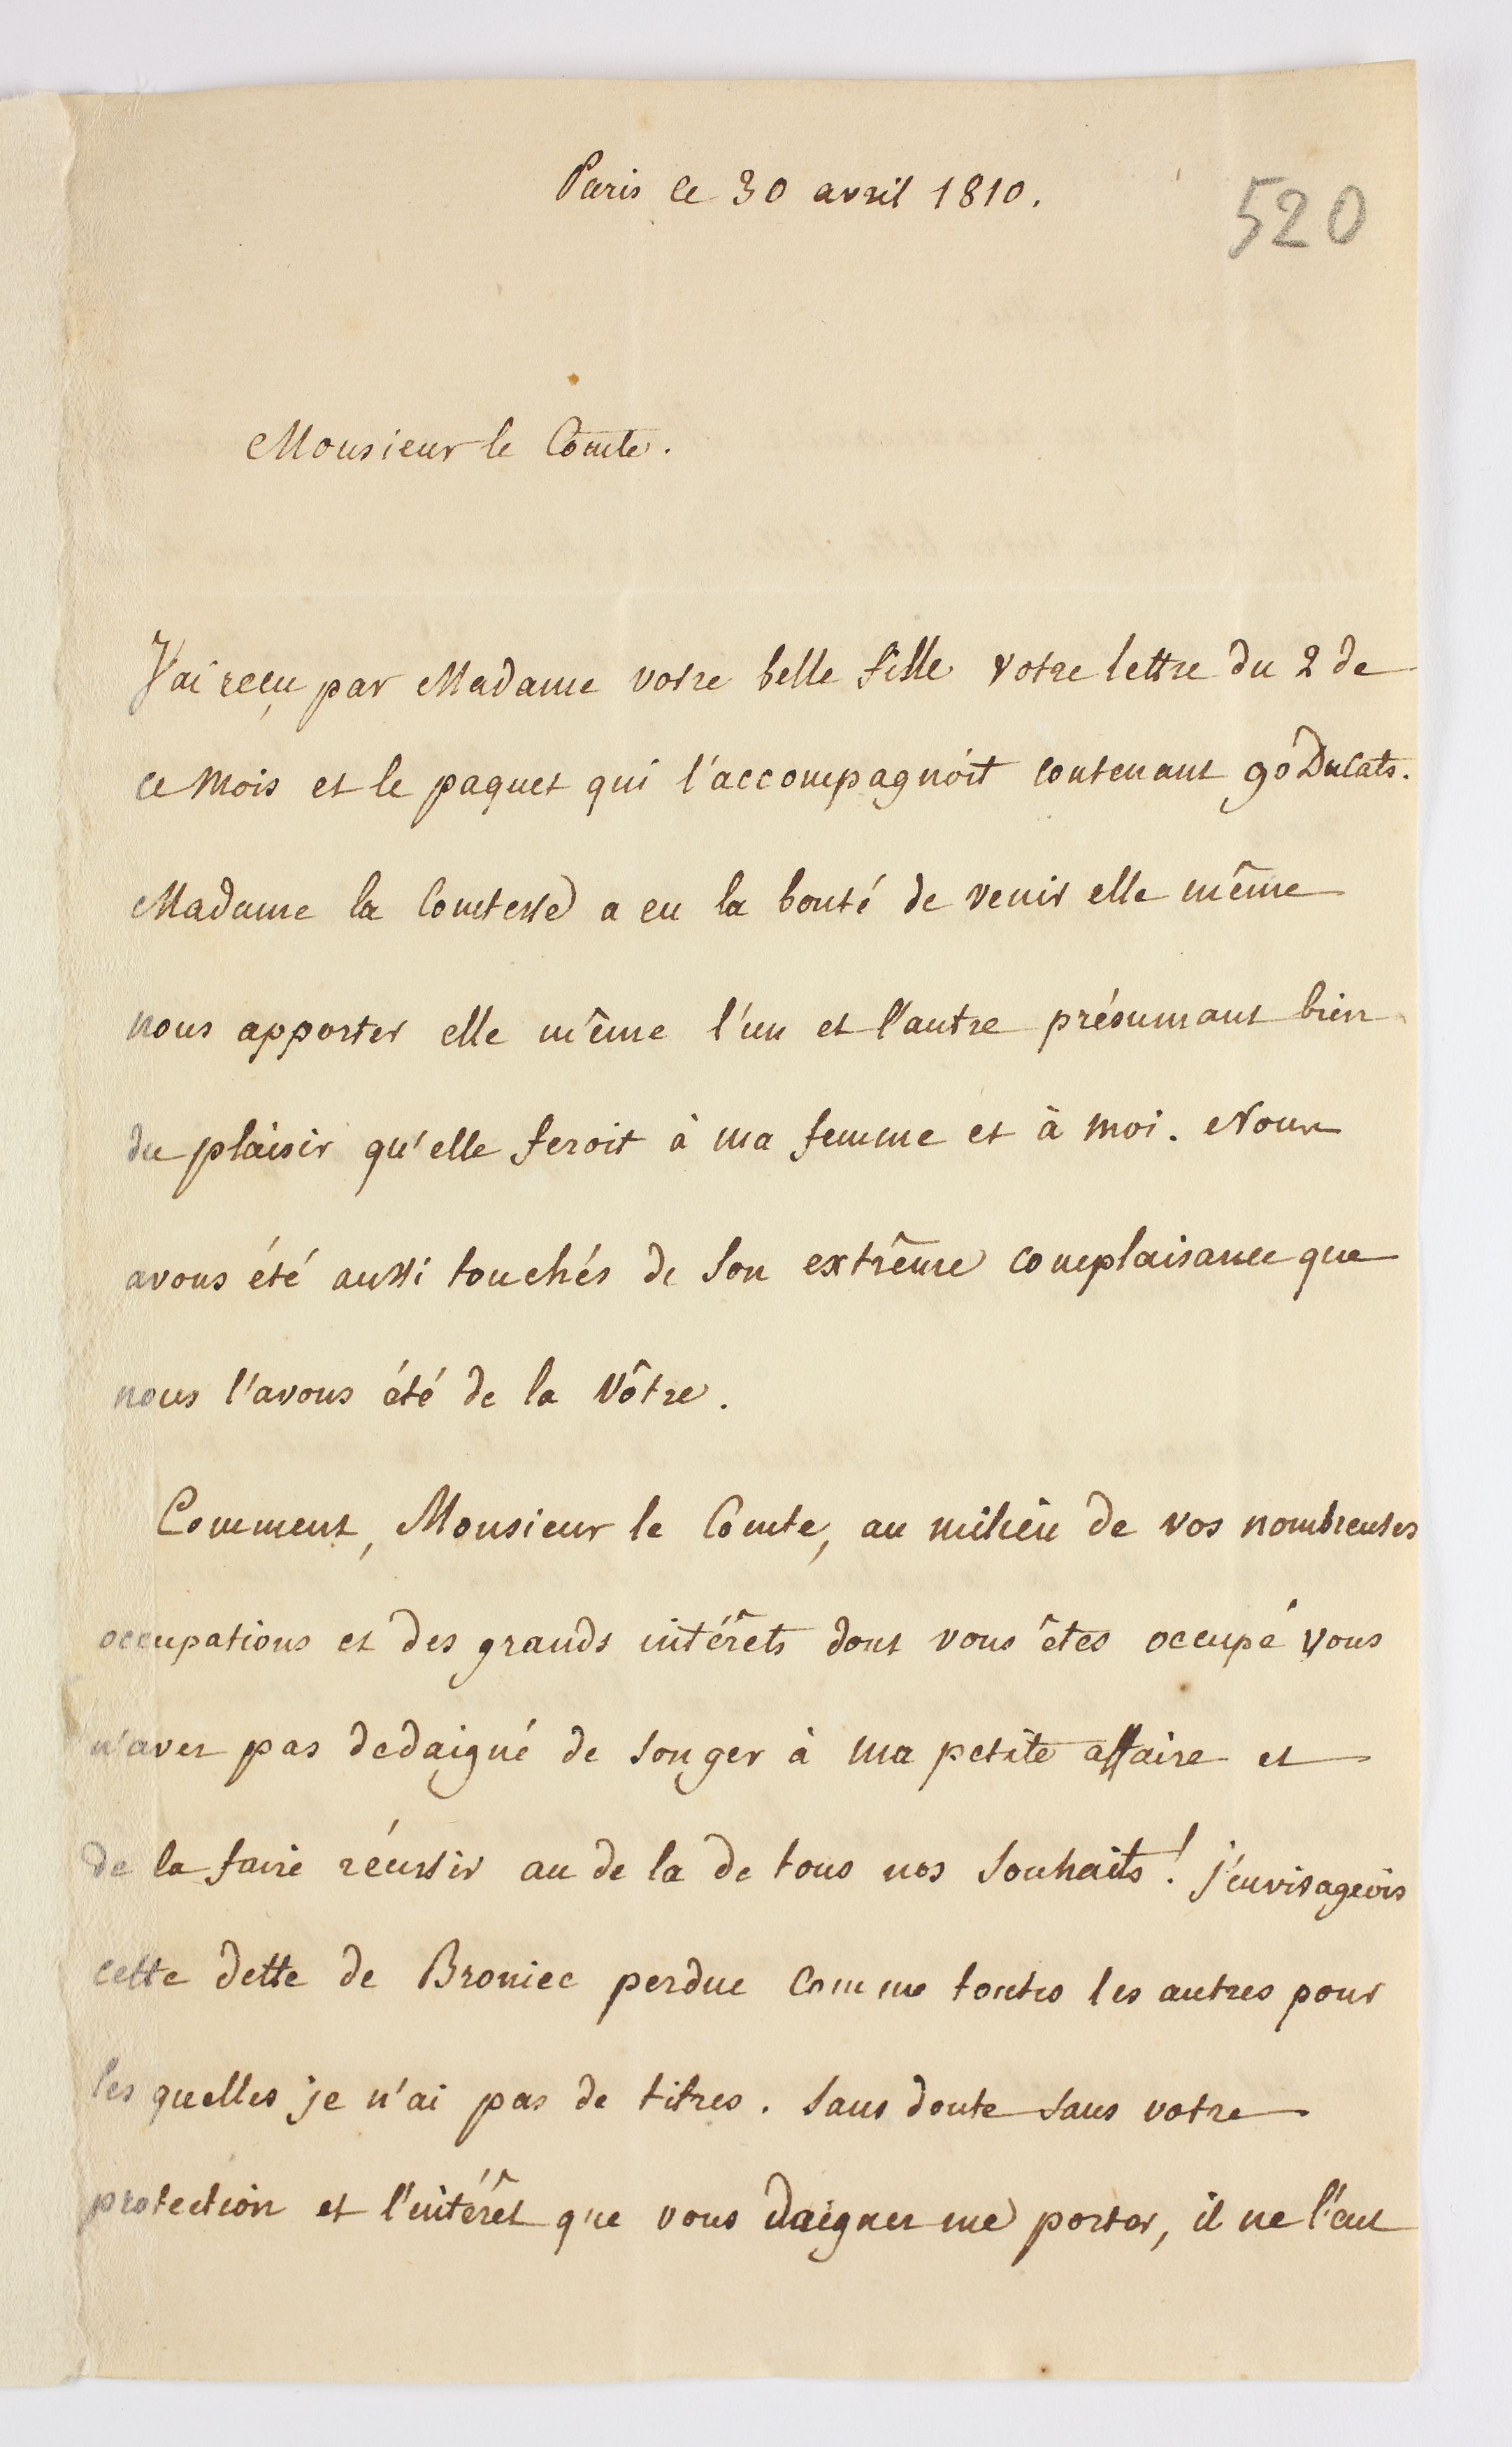 Paris le 30 avril 1810.
520
Monsieur le Comte.
J'ai reçu par Madame votre belle fille votre lettre du 2 de
ce mois et le paquet qui l'accompagnoit contenant 90 Ducats.
Madame la Comtesse a eu la bonté de venir elle même
nous apporter elle même l'un et l'autre présumant bien
du plaisir qu'elle feroit à ma femme et à moi. Nous
avons été aussi touchés de son extrême complaisance que
nous l'avons été de la vôtre.
Comment, Monsieur le Comte, au milieu de vos nombreuses
occupations et des grands intérêts dont vous êtes occupé vous
n'avez pas dedaigné de songer à ma petite affaire et
de la faire réussir au de la de tous nos souhaits! j'envisageois
cette dette de Broniec perdue comme toutes les autres pour
les quelles je n'ai pas de titres. Sans doute sans votre
protection et l'intérêt que vous daignez me porter, il ne l'eut